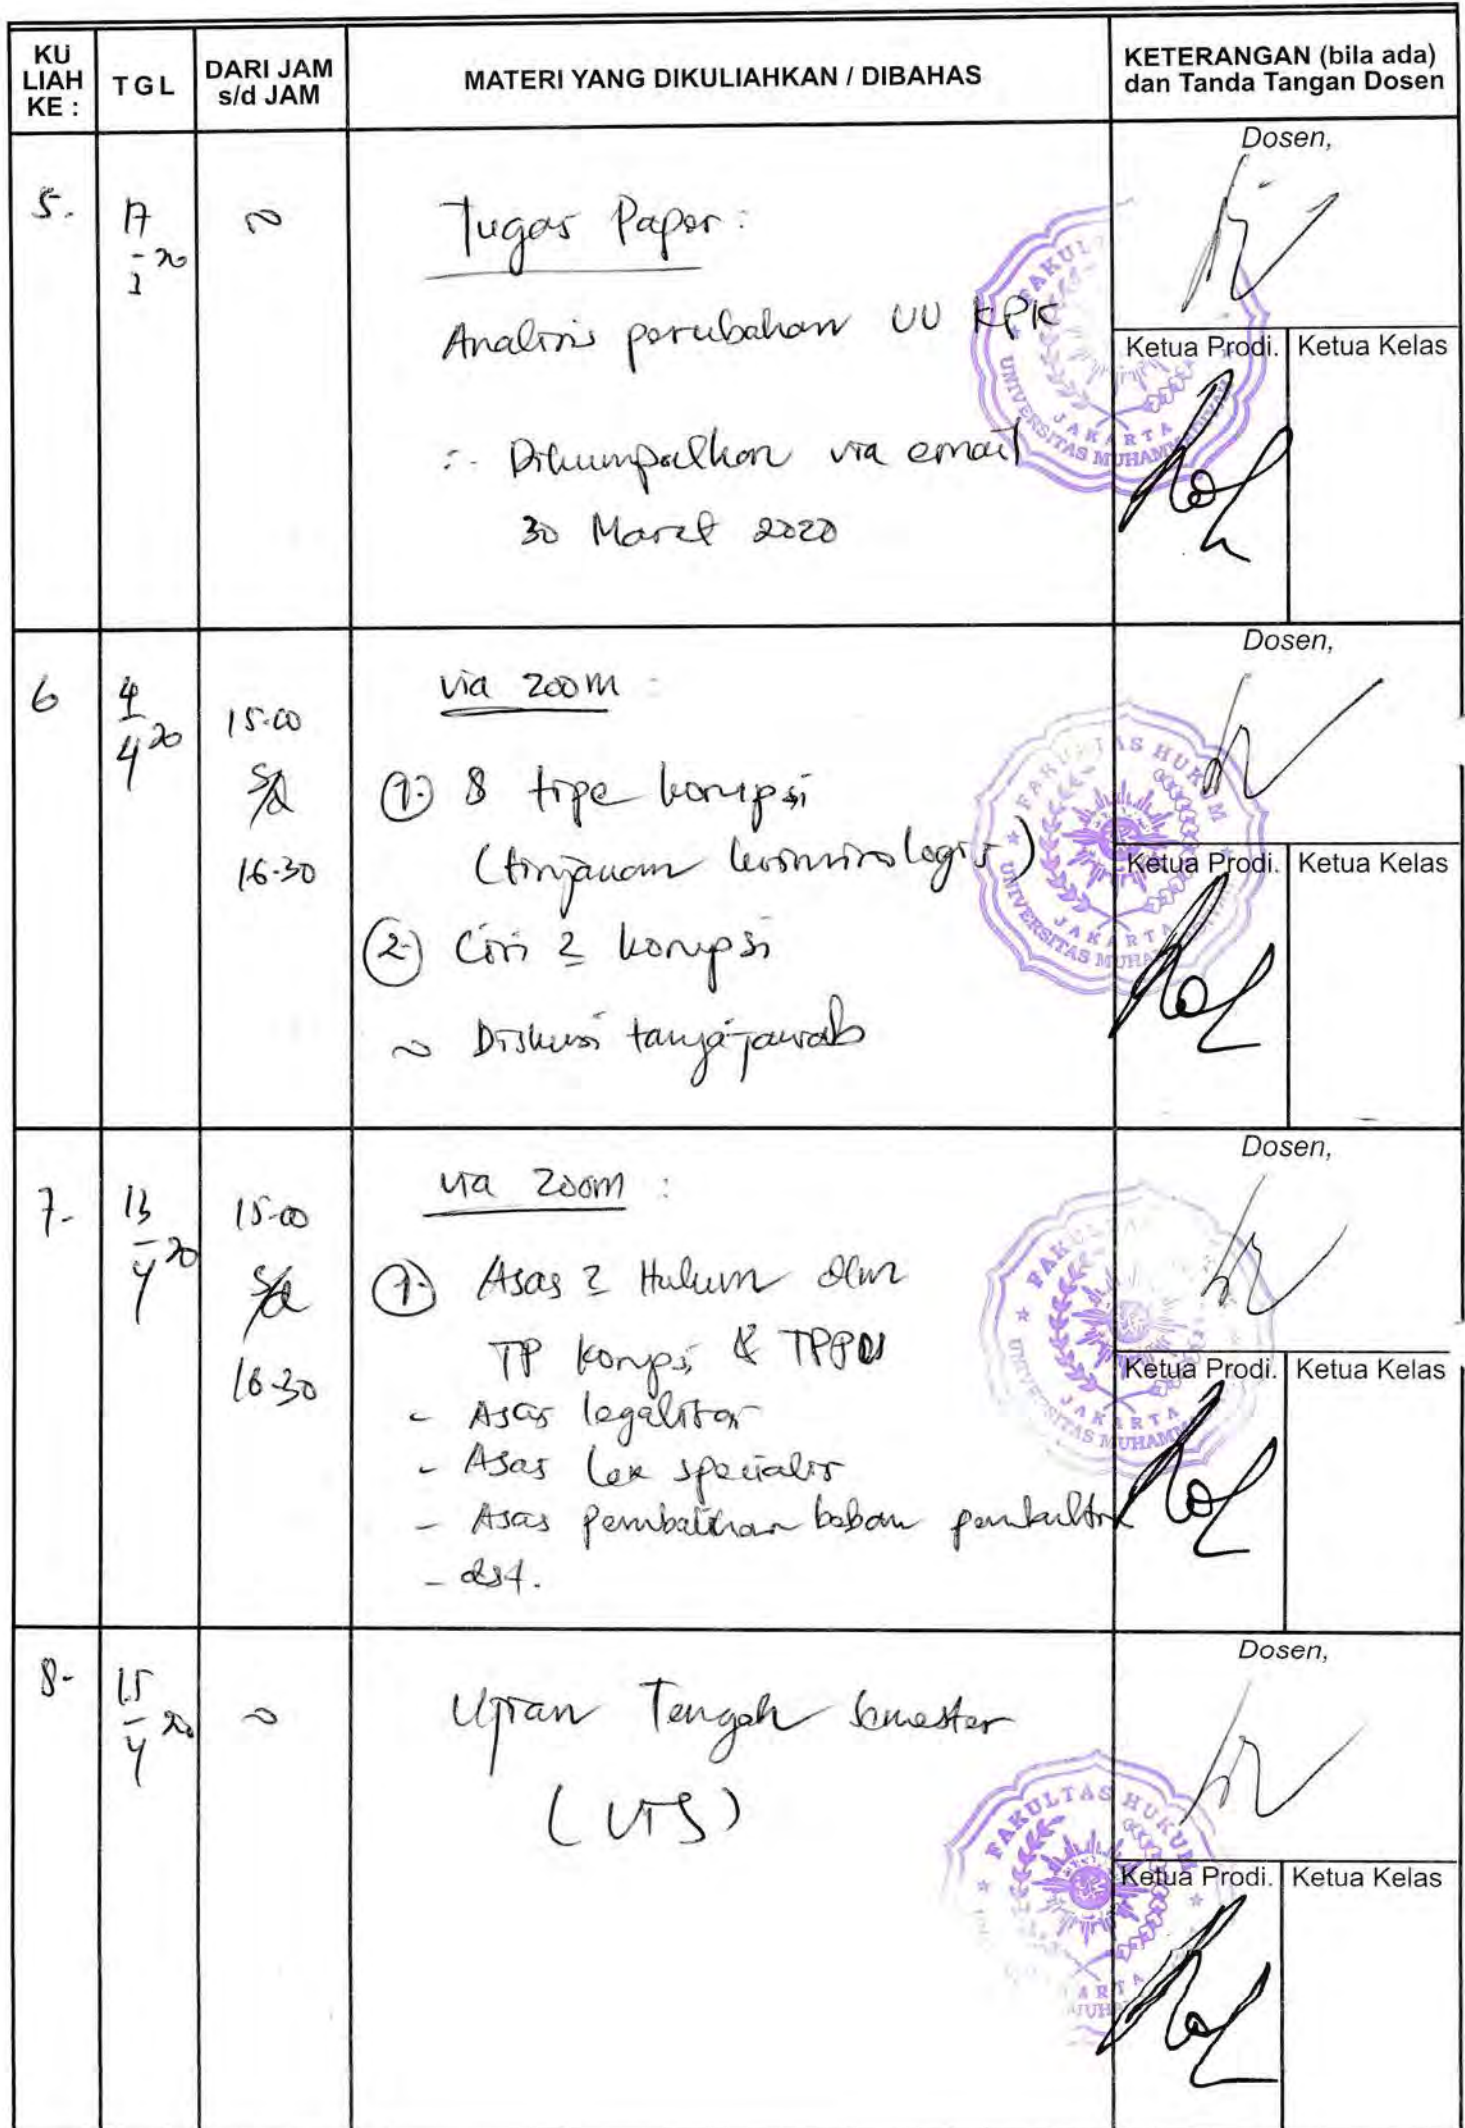 KU LIAH KE :
TGL
DARI JAM s/d JAM
MATERI YANG DIKULIAHKAN / DIBAHAS
KETERANGAN (bila ada) dan Tanda Tangan Dosen
5.
17
- 20
3
~
Tugas Paper :
Analisis perubahan UU KPK
:. Dikumpulkan via email
30 Maret 2020
Dosen,
Ketua Prodi.
Ketua Kelas
FAKUL
UNIVERSITAS MUHAMMADIYAH
JAKARTA
6
4
- 20
4
15.00
s/d
16.30
via zoom :
(1.) 8 tipe korupsi
(tinjauan kriminologis)
(2.) Ciri 2 korupsi
~ Diskusi tanya-jawab
Dosen,
Ketua Prodi.
Ketua Kelas
FAKULTAS HUKUM
UNIVERSITAS MUHA
JAKARTA
7.
13
- 20
4
15.00
s/d
16.30
via zoom :
(1.) Asas 2 Hukum dlm
TP Korupsi & TPPU
- Asas legalitas
- Asas lex specialis
- Asas pembalikan beban pembuktian
- dst.
Dosen,
Ketua Prodi.
Ketua Kelas
FAKULTA
UNIVERSITAS MUHAMM
JAKARTA
8.
15
- 20
4
~
Ujian Tengah Semester
(UTS)
Dosen,
Ketua Prodi.
Ketua Kelas
FAKULTAS HUKUM
ARTA
MUH